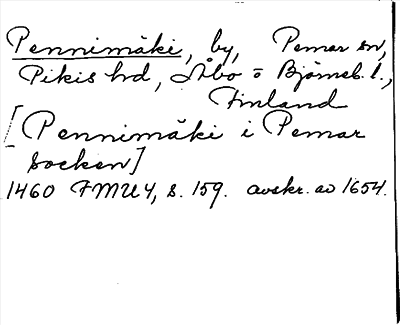 Pennimäki, by, Pemar sn,
Pikis hd, Åbo o Björneb. l.,
Finland
[Pennimäki i Pemar
socken]
1460 FMU 4, s. 159. avskr. av 1654.